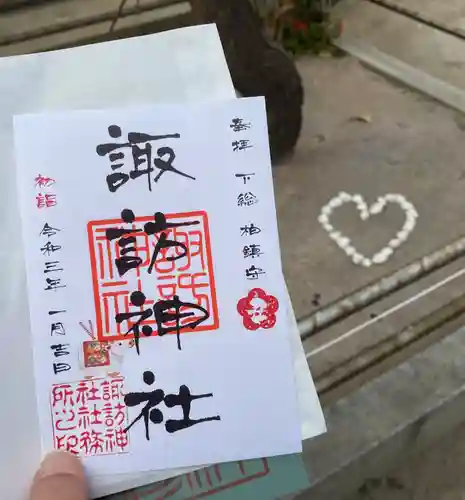 奉拝 下総 柏鎮守
諏訪神社
諏訪神社
初詣
令和三年 一月吉日
諏訪神
社社務
所之印